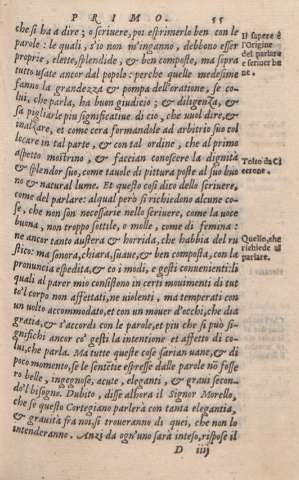 PRIMO. 55
che si ha a dire; o scriuere, poi esprimerlo ben con le
parole: le quali, s'io non m'inganno, debbono esser
proprie, elette, splendide, & ben composte, ma sopra
tutto usate ancor dal popolo: perche quelle medesime
fanno la grandezza & pompa dell'oratione, se co-
lui, che parla, ha buon giudicio; & diligenza, &
sa pigliarle piu significatiue di cio, che vuol dire, &
inalzare, et come cera formandole ad arbitrio suo col
locare in tal parte, & con tal ordine, che al primo
aspetto mostrino, & faccian conoscere la dignità
& splendor suo, come tauole di pittura poste al suo buo
no & natural lume. Et questo cosi dico dello scriuere,
come del parlare: al qual però si richiedono alcune co-
se, che non son necessarie nello scriuere, come la uoce
buona, non troppo sottile, o molle, come di femina:
ne ancor tanto austera & horrida, che habbia del ru
stico: ma sonora, chiara, suaue, & ben composta, con la
pronuncia espedita, & co i modi, e gesti conuenienti: li
quali al parer mio consistono in certi mouimenti di tut
to'l corpo non affettati, ne uiolenti, ma temperati con
un uolto accommodato, et con un mouer d'occhi, che dia
gratia, & s'accordi con le parole, et piu che si può si-
gnifichi ancor co' gesti la intentione et affetto di co-
lui, che parla. Ma tutte queste cose sarian uane, & di
poco momento, se le sentētie espresse dalle parole nō fosse
ro belle, ingegnose, acute, eleganti, & graui secon-
do'l bisogno. Dubito, disse alhora il Signor Morello,
che se questo Cortegiano parlerà con tanta elegantia,
& grauità fra noi, si troueranno di quei, che non lo
intenderanno. Anzi da ogn'uno sarà inteso, rispose il
D iiij
Il sapere è
l'Origine
del parlare
e scriuer be
ne.
Tolto da Ci
cerone.
Quello, che
richiede al
parlare.